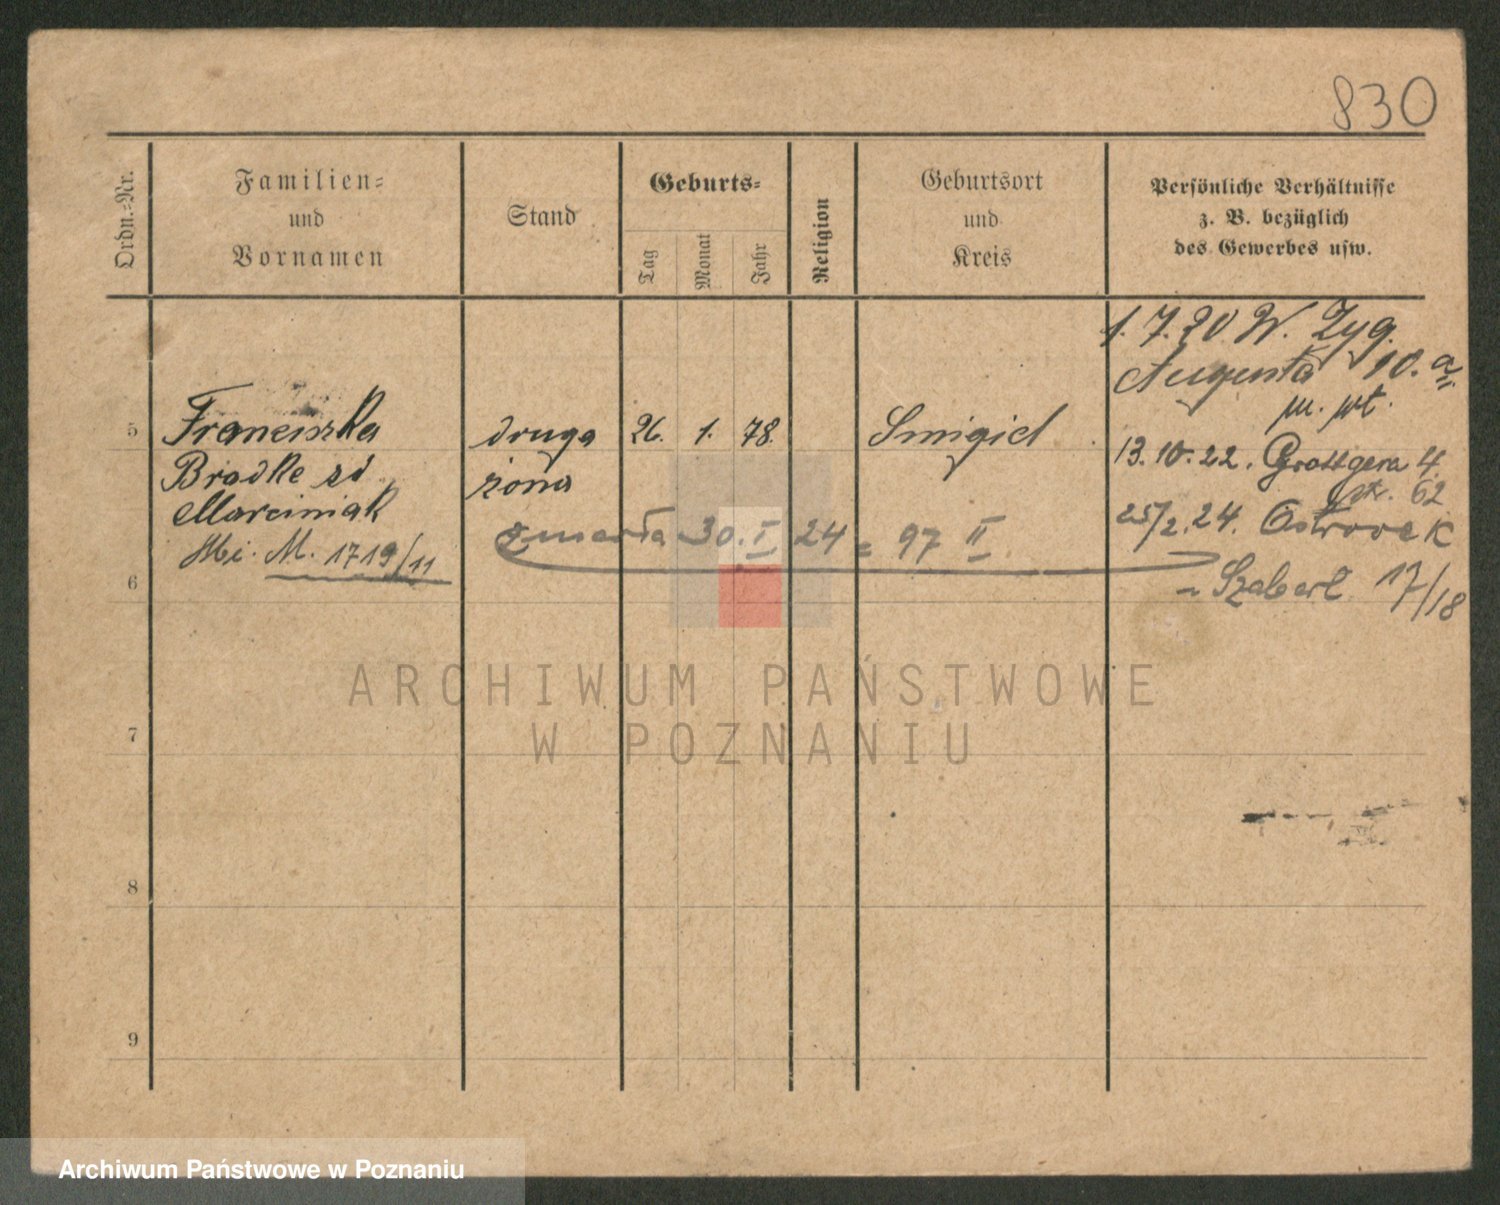 830
Ordn.-Nr.
Familien-
und
Vornamen
Stand
Geburts-
Tag
Monat
Jahr
Religion
Geburtsort
und
Kreis
Persönliche Verhältnisse
z. B. bezüglich
des Gewerbes usw.
1. 7. 20 W. Zyg.
Augusta 10. a
pr. pt.
5 Franciszka druga 26. 1. 78. Smigiel
13. 10. 22. Grottgera 4
Bradke zd żona
62
Marciniak
25/2. 24. Ostrowek
zmarła 30. I 24 = 97 II
M. 1719/11
6
- Szabert 17/18
7
8
9
ARCHIWUM PAŃSTWOWE
W POZNANIU
Archiwum Państwowe w Poznaniu